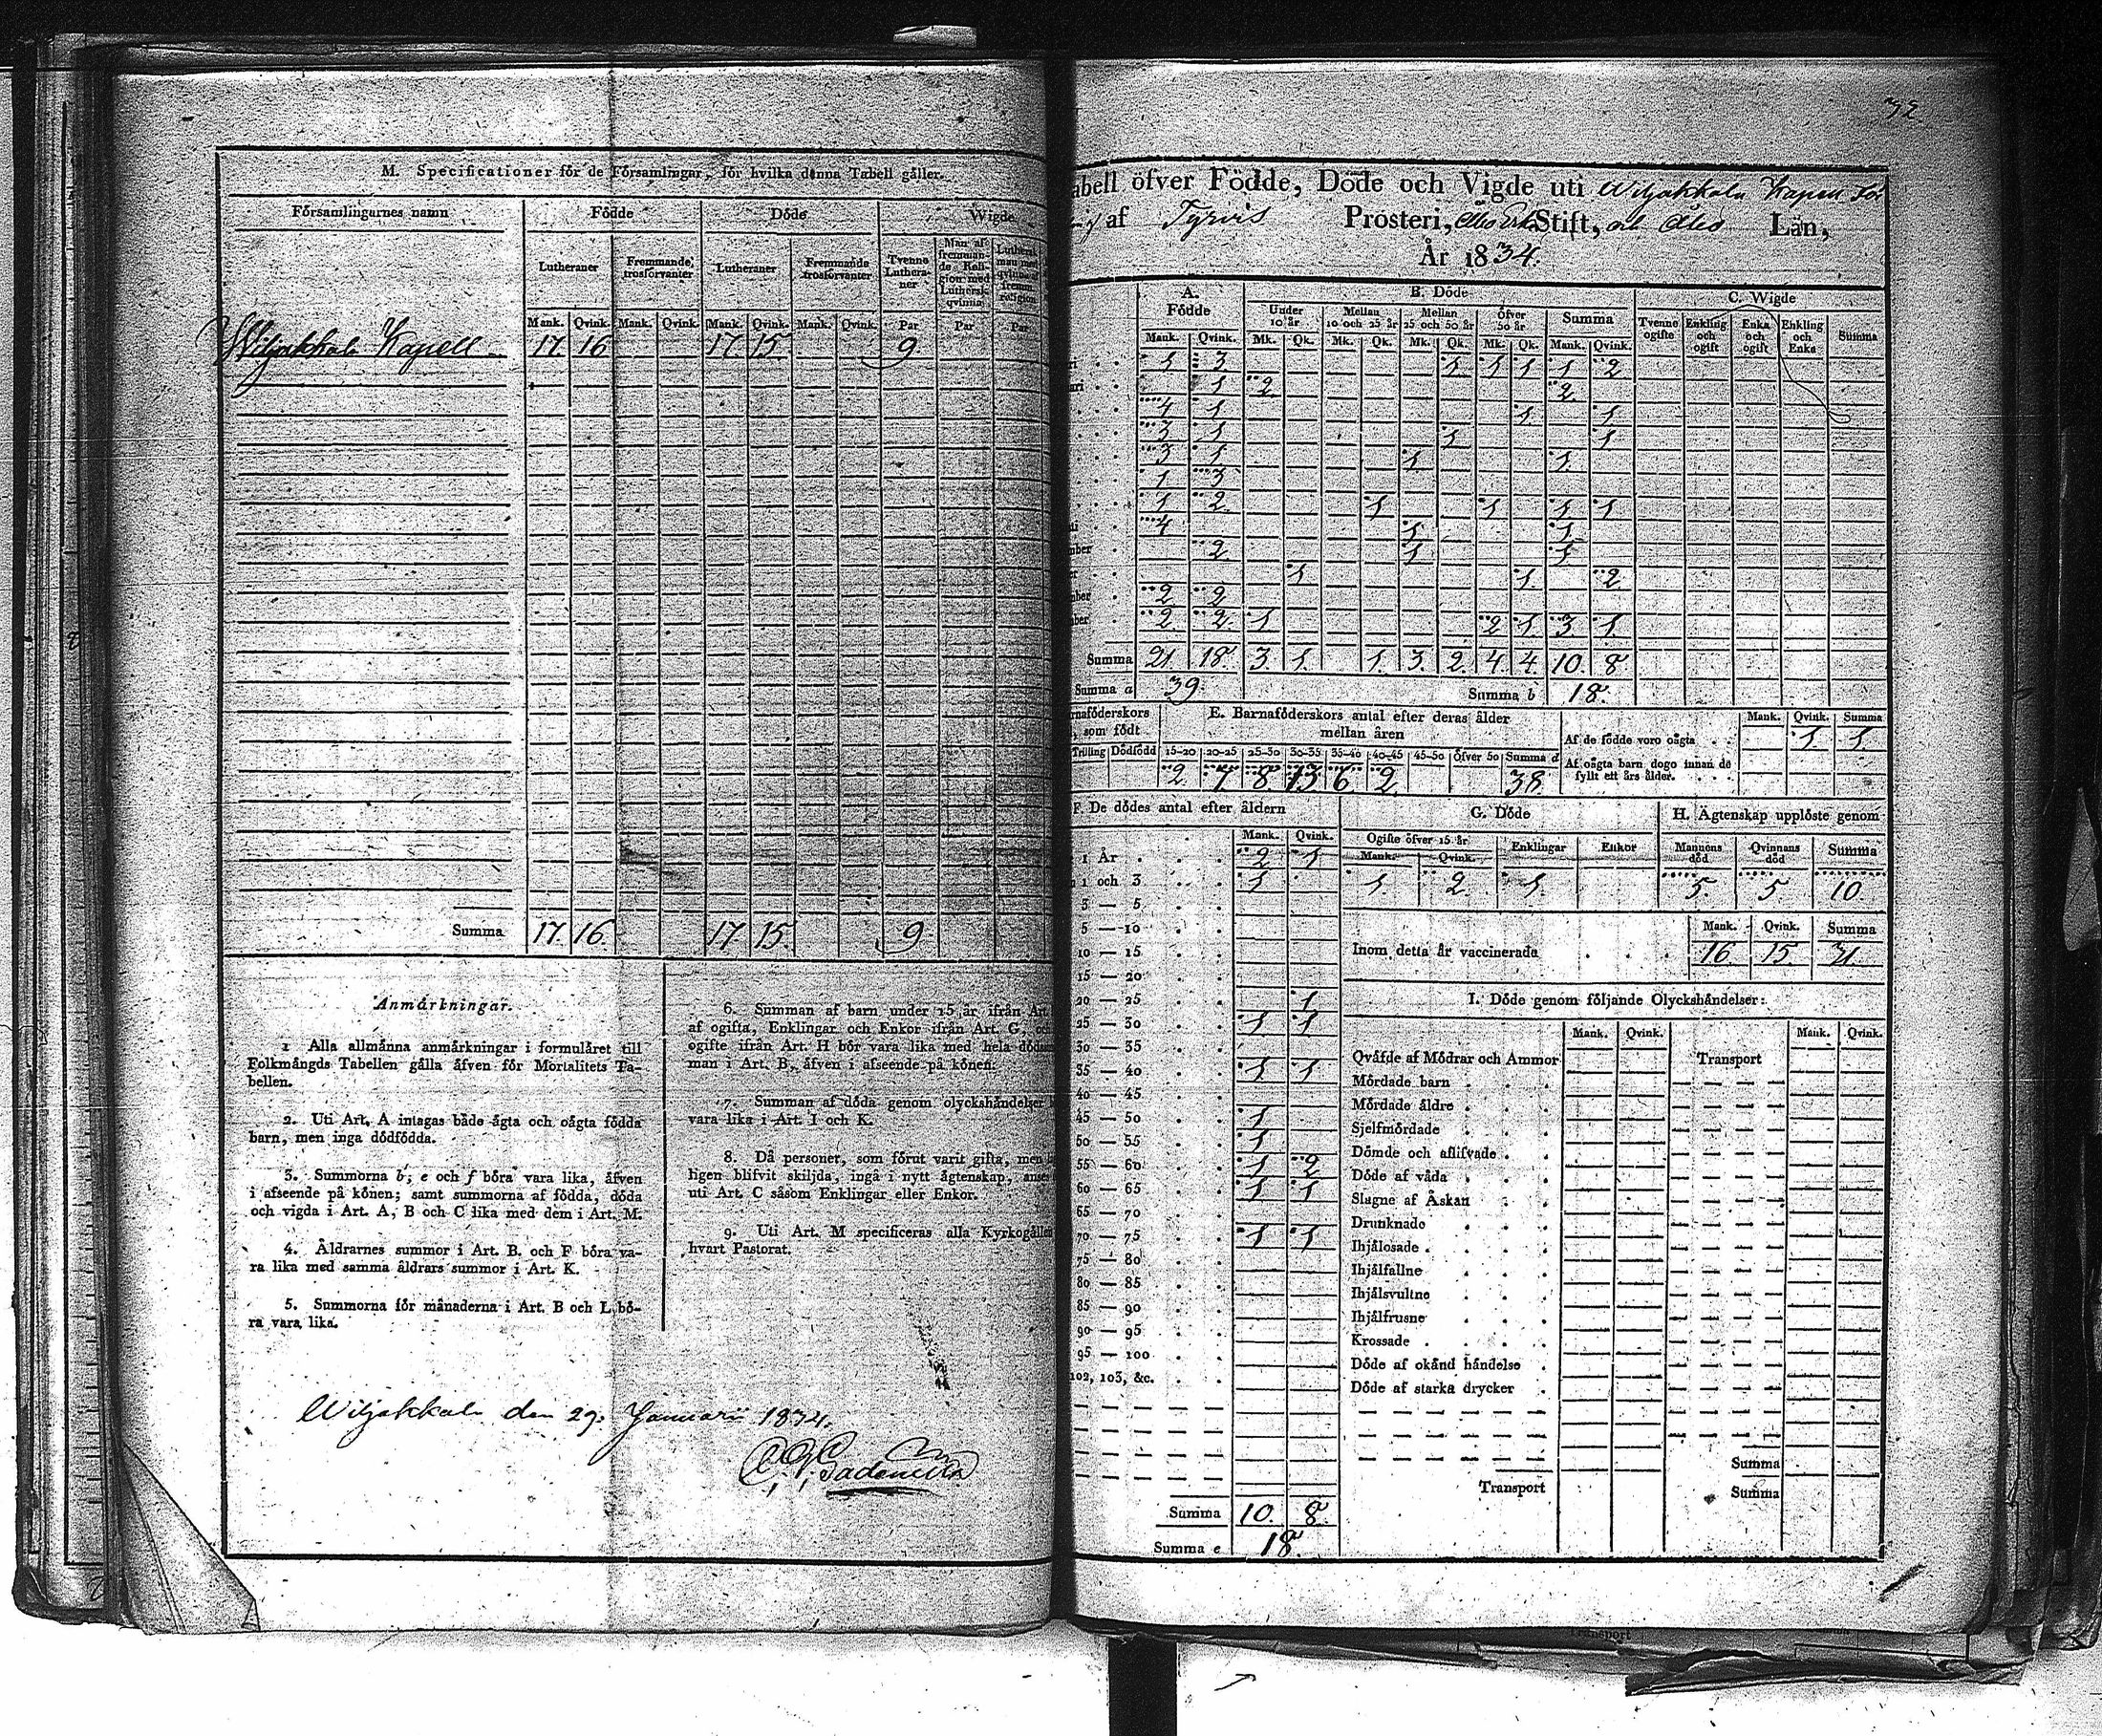 M. Specificationer för de Församlingar, för hvilka denna Tabell gäller.
Församlingarnes namn Födde Döde Wigde
Lutheraner Fremmande trosförvanter Lutheraner Fremmande trosförvanter Tvenne Lutheraner Man af fremmande Religion med Luthersk qvinna
Mank. Qvink. Mank. Qvink. Mank. Qvink. Mank. Qvink. Par Par Par
Wiljakkala Kapell 17 16 17 15 9
Summa 17. 16. 17 15 9
Anmärkningar.
1 Alla allmänna anmärkningar i formuläret till
Folkmängds Tabellen gälla äfven för Mortalitets Ta-
bellen.
2. Uti Art. A intagas både ägta och oägta födda
barn, men inga dödfödda.
3. Summorna b, e och f böra vara lika, äfven
i afseende på könen; samt summorna af födda, döda
och vigda i Art. A, B och C lika med dem i Art. M.
4. Åldrarnes summor i Art. B. och F böra va-
ra lika med samma åldrars summor i Art. K.
5. Summorna för månaderna i Art. B och L bö-
ra vara lika.
6. Summan af barn under 15 år ifrån Art.
af ogifta, Enklingar och Enkor ifrån Art. G,
ogifte ifrån Art. H bör vara lika med hela
man i Art. B, äfven i afseende på könen.
7. Summan af döda genom olyckshändelser
vara lika i Art. I och K.
8. Då personer, som förut varit gifta, men
ligen blifvit skiljda, ingå i nytt ägtenskap,
uti Art. C såsom Enklingar eller Enkor.
9. Uti Art. M specificeras alla
hvart Pastorat.
Wiljakkala den 29. Januarii 1834.
72
abell öfver Födde, Döde och Vigde uti Wiljakkala Kapell För
af Tyrvis Prosteri, Åbo Stift, och Åbo Län,
År 1834.
A. Födde B. Döde C. Wigde
Under 10 år Mellan 10 och 25 år Mellan 25 och 50 år Öfver 50 år Summa Tvenne ogifte Enkling och ogift Enka och ogift Enkling och Enka Summa
Mank. Qvink. Mk. Qk. Mk. Qk. Mk. Qk. Mk. Qk. Mank. Qvink.
ri 1 3 1 1 1 1 2
ari 1 2 2
4 1 1 1
3 1 1 1
3 1 1 1
1 3
1 2 1 1 1 1
4 1 1
mber 2 1 1
r 1 1 2
mber 2 2
mber 2 2 1 2 1 3 1
Summa 21 18 3 1 1 3 2 4 4 10 8
Summa a 39. Summa b 18.
rnaföderskors
, som födt
Trilling Dödfödd
E. Barnaföderskors antal efter deras ålder
mellan åren
15-20 20-25 25-30 30-35 35-40 40-45 45-50 Öfver 50 Summa d
2 7 8 13 6 2 38
Mank. Qvink. Summa
Af de födde voro oägta . . 1 1
Af oägta barn dogo innan de
fyllt ett års ålder.
F. De dödes antal efter åldern
Mank. Qvink.
1 År 2 1
1 och 3 1
3 — 5
5 — 10
10 — 15
15 — 20
20 — 25 1
25 — 30 1 1
30 — 35
35 — 40 1 1
40 — 45
45 — 50 1
50 — 55 1
55 — 60 1 2
60 — 65 1 1
65 — 70
70 — 75 1 1
75 — 80
80 — 85
85 — 90
90 — 95
95 — 100
102, 103, &c.
Summa 10. 8.
Summa e 18
G. Döde H. Ägtenskap upplöste genom
Ogifte öfver 15 år Enklingar Enkor Mannens död Qvinnans död Summa
Mank. Qvink.
1 2 1 5. 5. 10
Mank. Qvink. Summa
Inom detta år vaccinerade . . . 16 15 31
I. Döde genom följande Olyckshändelser:
Mank. Qvink. Mank. Qvink.
Qväfde af Mödrar och Ammor Transport
Mördade barn
Mördade äldre
Sjelfmördade
Dömde och aflifvade
Döde af våda
Slagne af Åskan
Drunknade
Ihjälosade
Ihjälfallne
Ihjälsvultne
Ihjälfrusne
Krossade
Döde af okänd händelse
Döde af starka drycker
Summa
Transport Summa
Transport